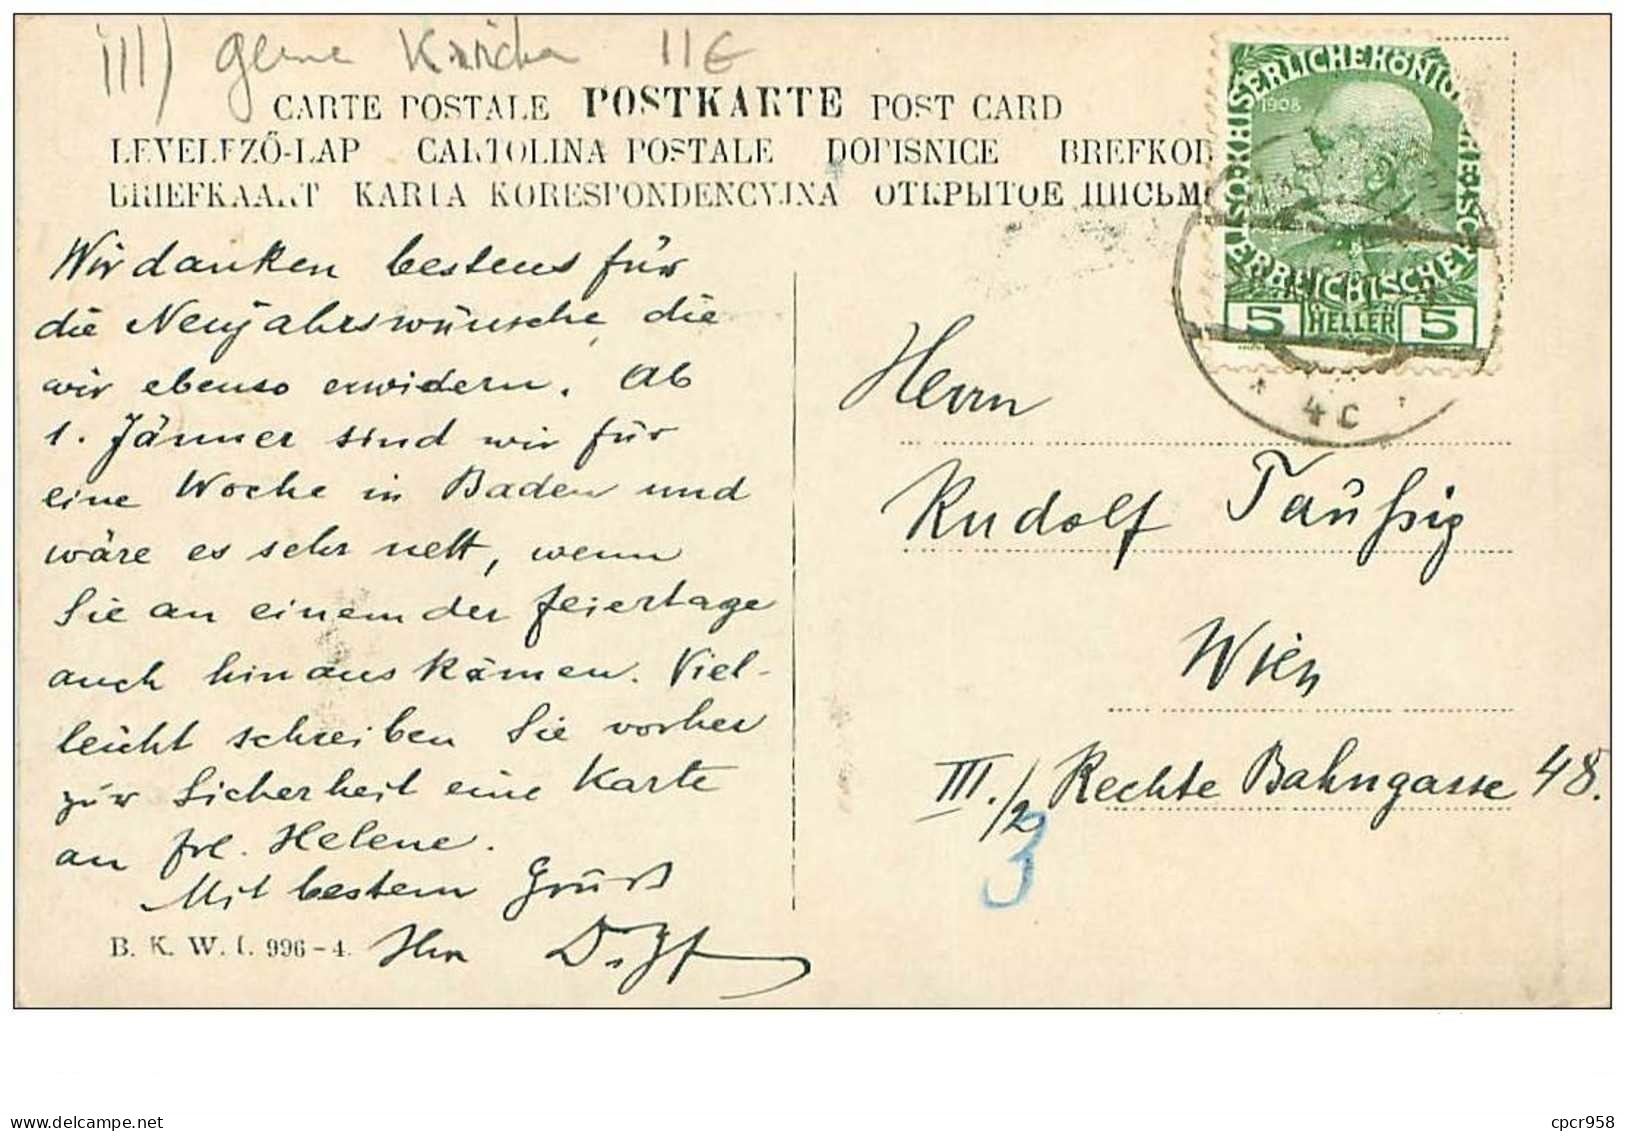 11€
CARTE POSTALE POSTKARTE POST CARD
LEVELEZŐ-LAP CARTOLINA POSTALE DOPISNICE BREFKOR
BRIEFKAART KARTA KORESPONDENCYJNA ОТКРЫТОЕ ПИСЬМО
1908
5 HELLER 5
4c
Wir danken bestens für
die Neujahrswünsche, die
wir ebenso erwidern. Ab
1. Jänner sind wir für
eine Woche in Baden und
wäre es sehr nett, wenn
Sie an einem der Feiertage
auch hinaus kämen. Viel-
leicht schreiben Sie vorher
zur Sicherheit eine Karte
an Frl. Helene.
Mit bestem Gruß
Ihr
B. K. W. I. 996-4.
Herrn
Rudolf Taußig
Wien
III./2 Rechte Bahngasse 48.
3
delcampe.net
cpcr958